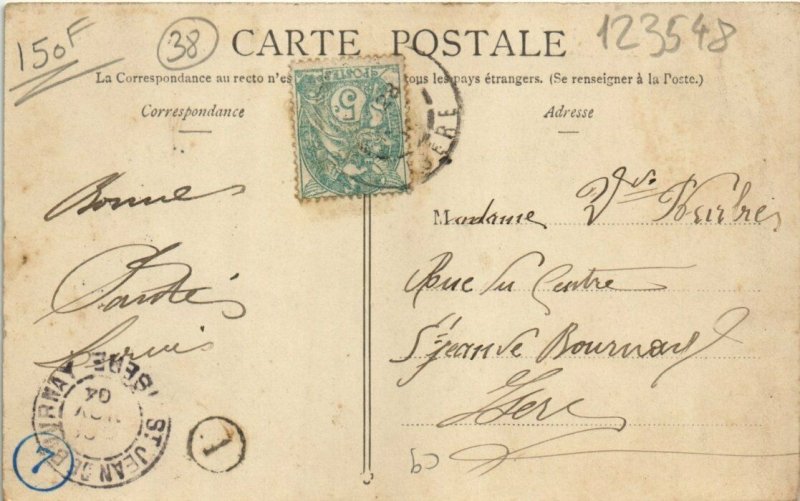 150F
38
CARTE POSTALE
123548
La Correspondance au recto n'es tous les pays étrangers. (Se renseigner à la Poste.)
Correspondance
Adresse
5
POSTES
ISÈRE
Bonne
Santé
Madame Vve
Rue du Centre
St jean de Bournay
Isere
ST JEAN DE BOURNAY
ISÈRE
04
1
7